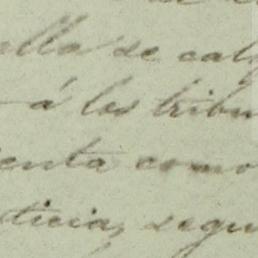 ella se cal
á los tribu
enta como
ticia, segu